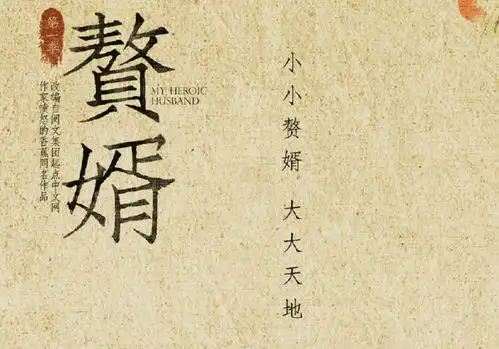 第一季
赘婿
MY HEROIC
HUSBAND
改编自阅文集团起点中文网
作家愤怒的香蕉同名作品
小小赘婿 大大天地